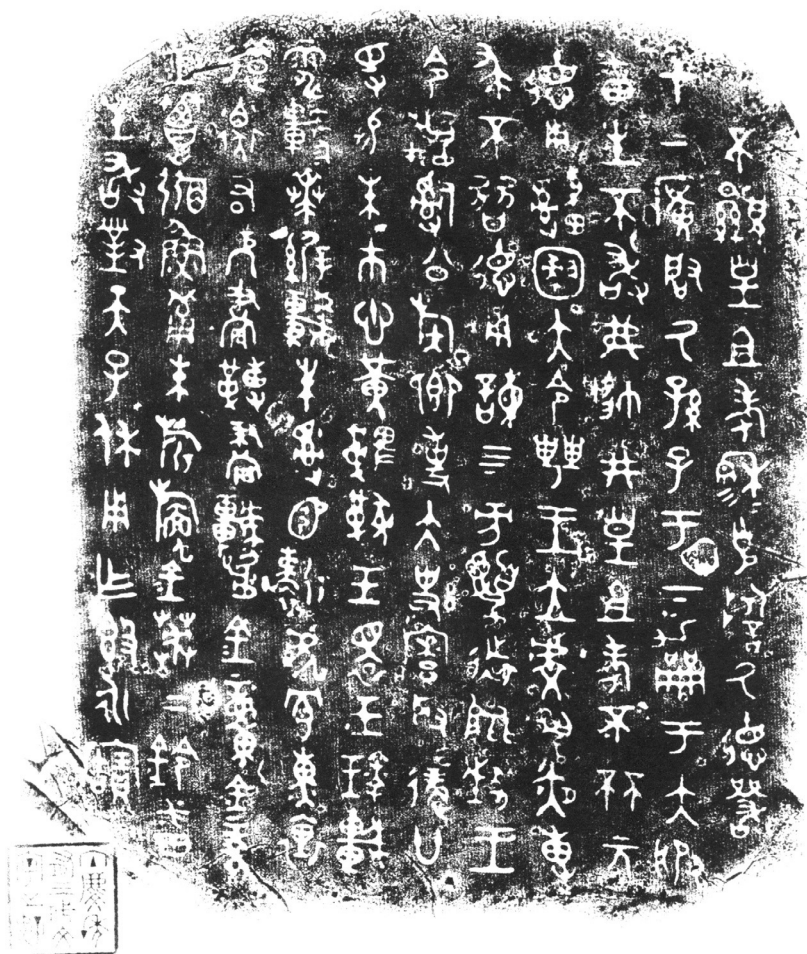 不顯皇且考穆=克誓氒德嚴才
上廣啟氒孫子于下擢于大服
番生不敢弗帥井皇且考不杯元
德用大令甹王立虔夙夜尃
求不朁德用諫四方遠能王
令公族卿事大史寮取廿
寽易朱市悤黃鞞玉睘玉車
電軫較朱虎冟熏裏
錯衡右厄畫畫金童金豕
金簟弼魚葡朱旂金二鈴番
生敢對天子休用乍簋永寶